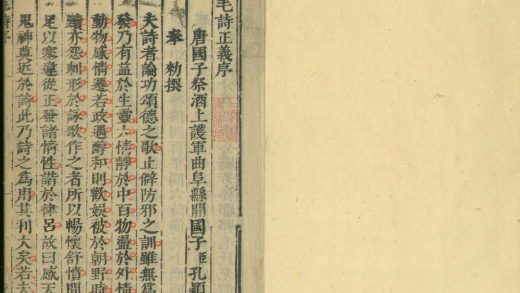 毛詩正義序
唐國子祭酒上護軍曲阜縣開國子臣孔穎
奉 勑撰
夫詩者論功頌德之歌止僻防邪之訓雖無為
發乃有益於生靈六情靜於中百物盪於外情
動物感情遷若政遇醇和則歡娛被於朝野時
黷亦怨刺形於詠歌作之者所以暢懷舒憤聞
足以塞違從正發諸情性諧於律呂故曰感天
鬼神莫近於詩此乃詩之為用其利大矣若夫
毛詩序